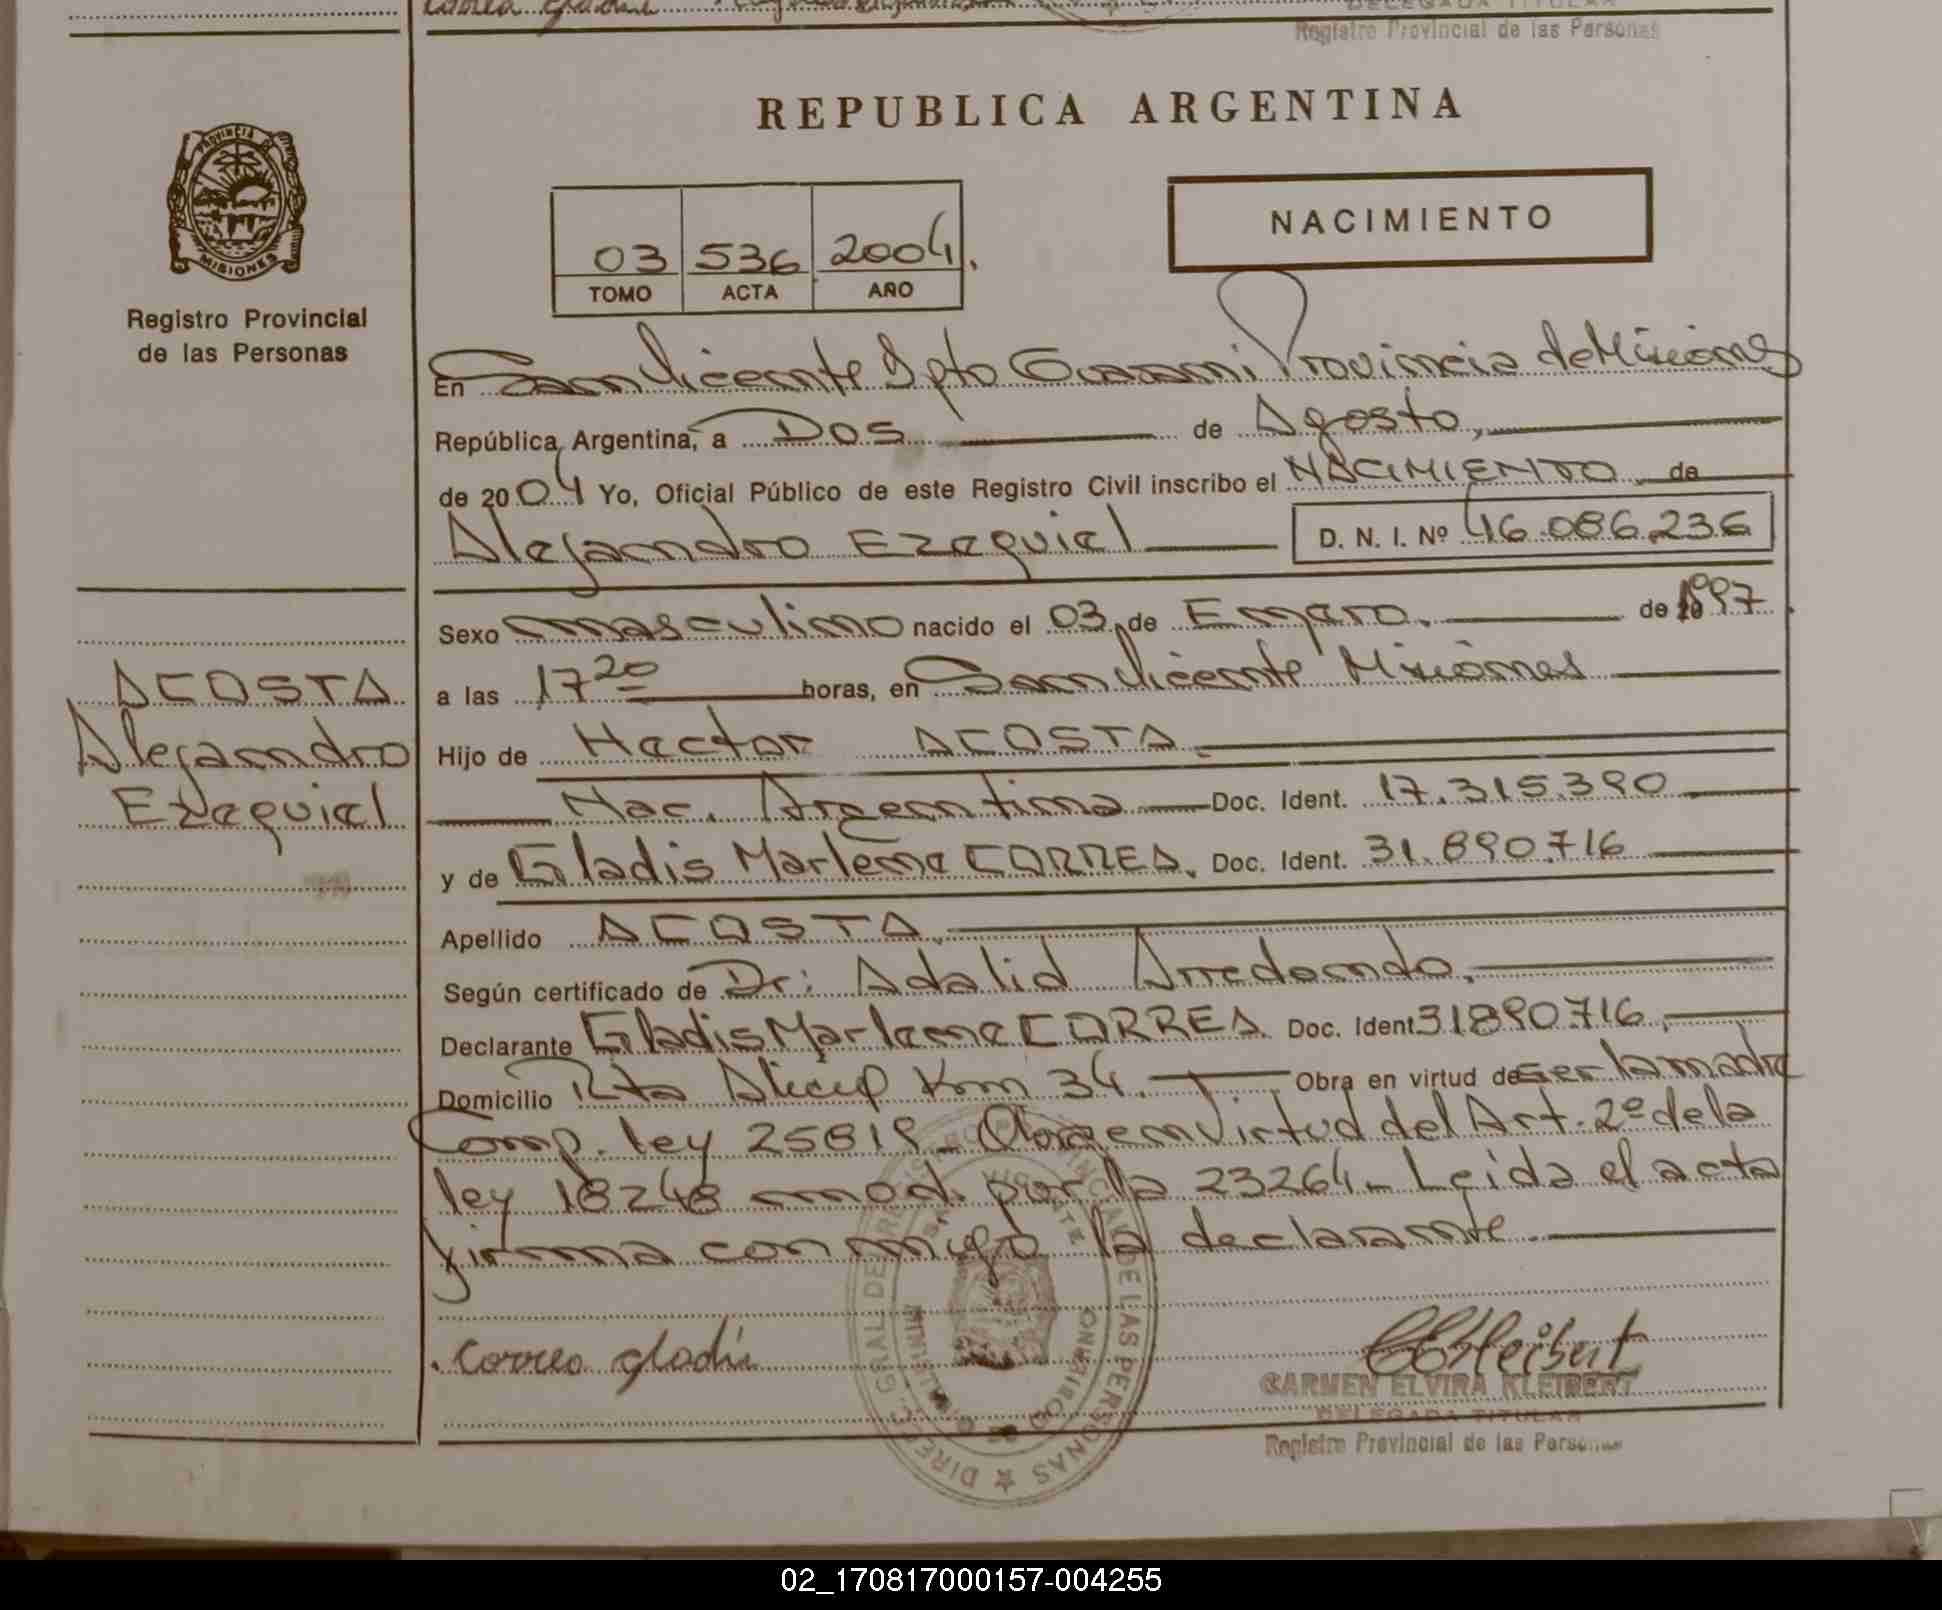 Correa gladis
DELEGADA TITULAR
Registro Provincial de las Personas
REPUBLICA ARGENTINA
PROVINCIA DE
MISIONES
Registro Provincial
de las Personas
03 536 2004.
TOMO ACTA AÑO
NACIMIENTO
En San Vicente Dpto Guarani Provincia de Misiones
República Argentina, a Dos de Agosto,
de 2004 Yo, Oficial Público de este Registro Civil inscribo el NACIMIENTO de
Alejandro Ezequiel D. N. I. Nº 46.086.236
Sexo masculino nacido el 03 de Enero. de 1997.
a las 17 20 horas, en San Vicente Misiones
Hijo de Hector ACOSTA
Nac. Argentina Doc. Ident. 17.315.390
y de Gladis Marlene CORREA. Doc. Ident. 31.890.716
Apellido ACOSTA.
Según certificado de Dr: Adalid Arredondo.
Declarante Gladis Marlene CORREA Doc. Ident 31890716,
Domicilio Rta Km 34. Obra en virtud de ser la madre
Comp. ley 25819 en Virtud del Art. 2º de la
ley 18248 mod. por la 23264- Leida el acta
firma con migo la declarante.
ACOSTA
Alejandro
Ezequiel
Correa gladis
CARMEN ELVIRA KLEIBERT
DELEGADA TITULAR
Registro Provincial de las Personas
02_170817000157-004255